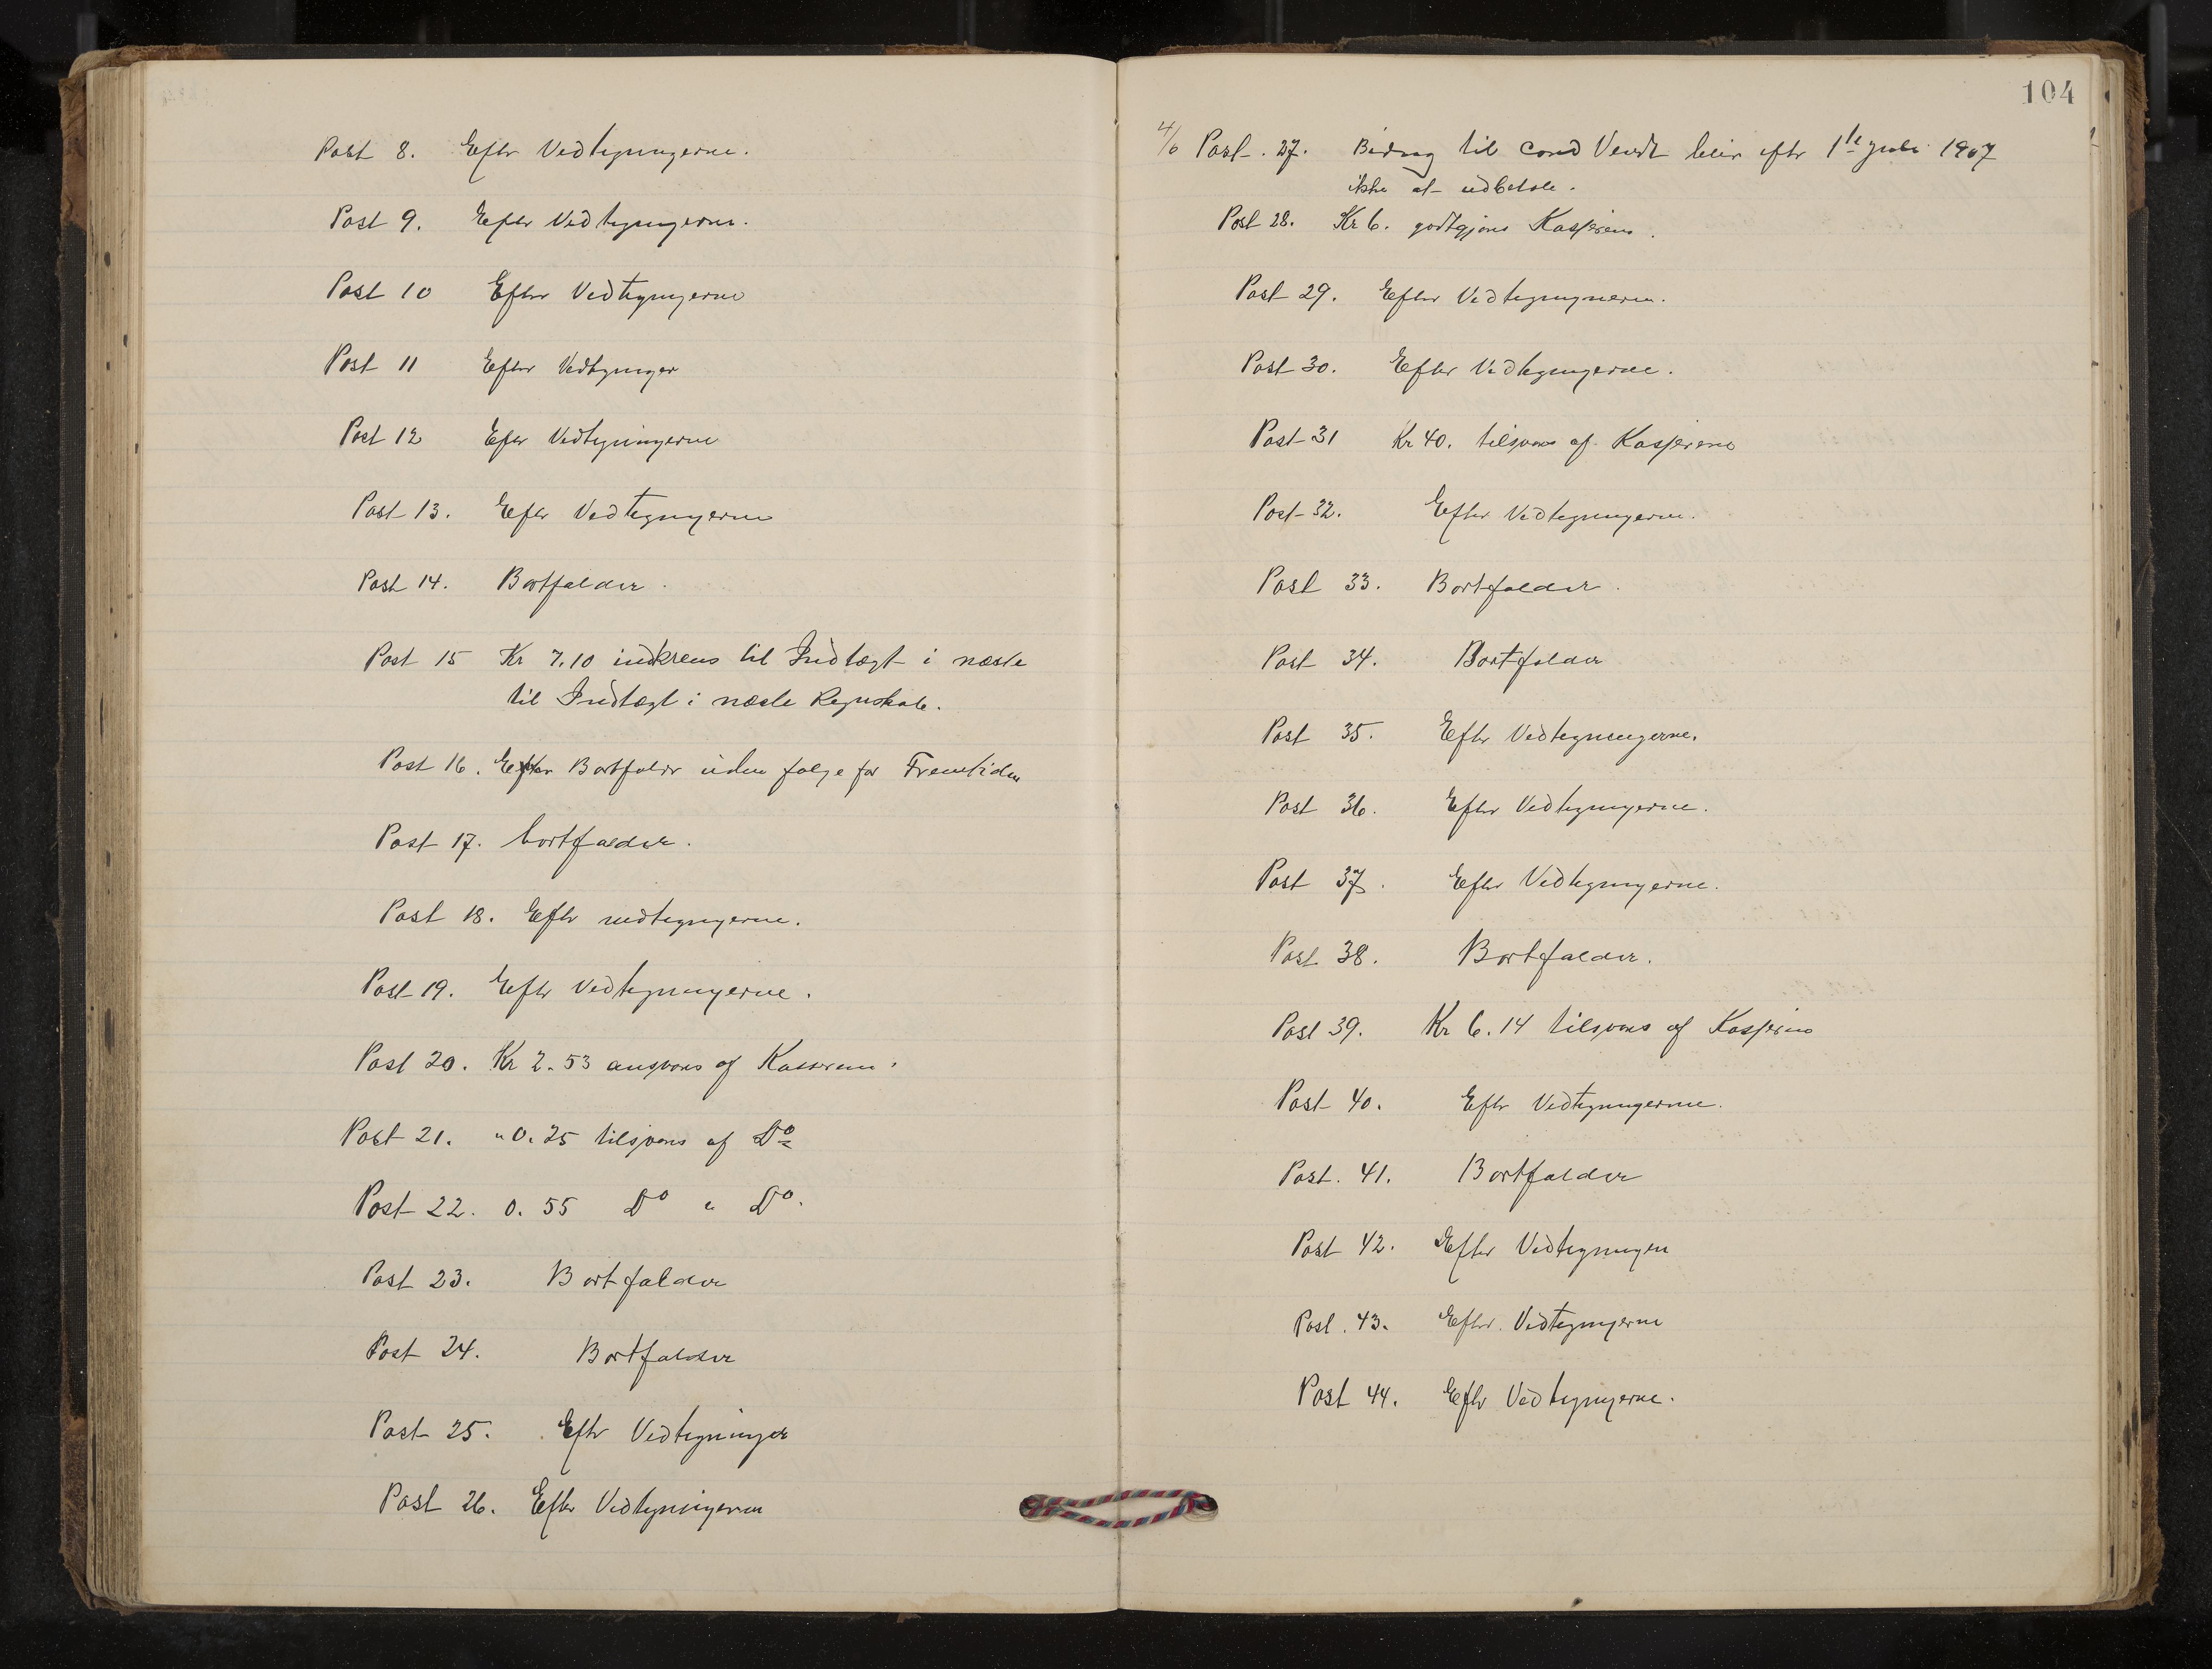 Post 8. Efter Vedtegningerne.
Post 9. Efter Vedtegningerne.
Post 10 Efter Vedtegningerne
Post 11 Efter Vedtegninger
Post 12 Efter Vedtegningerne
Post 13. Efter Vedtegningerne
Post 14. Bortfalder.
Post 15 Kr 7.10 indkreves til Indtægt i næste
til Indtægt i næste Regnskab.
Post 16. Efter Bortfaldr uden følge for Fremtiden
Post 17. bortfalder.
Post 18. Efter vedtegningerne.
Post 19. Efter Vedtegningerne.
Post 20. Kr 2.53 ansvares af Kassereren.
Post 21. " 0.25 tilsvares af Do
Post 22. 0.55 Do " Do.
Post 23. Bortfalder
Post 24. Bortfalder
Post 25. Efter Vedtegninger
Post 26. Efter Vedtegningerne
104
4/6 Post. 27. Bidrag til cand Vendt bliver efter 1ste juli 1907
ikke at udbetale.
Post 28. Kr 6. godtgjøres Kassereren.
Post 29. Efter Vedtegningnerne.
Post 30. Efter Vedtegningerne.
Post 31 Kr 40. tilsvares af Kassereren
Post 32. Efter Vedtegningerne.
Post 33. Bortfalder.
Post 34. Bortfalder
Post 35. Efter Vedtegningerne.
Post 36. Efter Vedtegningerne.
Post 37. Efter Vedtegningerne.
Post 38. Bortfalder.
Post 39. Kr 6.14 tilsvares af Kassereren
Post 40. Efter Vedtegningerne.
Post. 41. Bortfalder
Post 42. Efter Vedtegningen
Post. 43. Efter Vedtegningerne
Post 44. Efter Vedtegningerne.